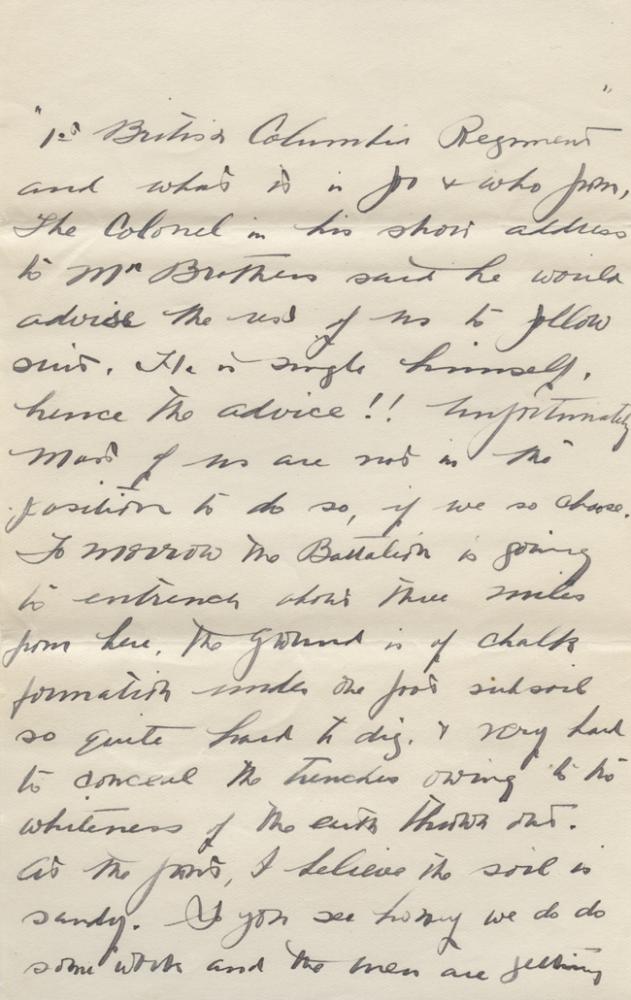 "1st British Columbia Regiment"
and what it is for & who from,
The Colonel in his short address
to Mrs Brothers said he would
advise the rest of us to follow
suit. He is single himself,
hence the advice!! Unfortunately
most of us are not in the
position to do so, if we so choose.
To morrow the Battalion is going
to entrench about three miles
from here. The ground is of chalk
formation under one foot subsoil
so quite hard to dig. & very hard
to conceal the trenches owing to the
whiteness of the earth thrown out.
At the front, I believe the soil is
sandy. So you see honey we do do
some work and the men are getting